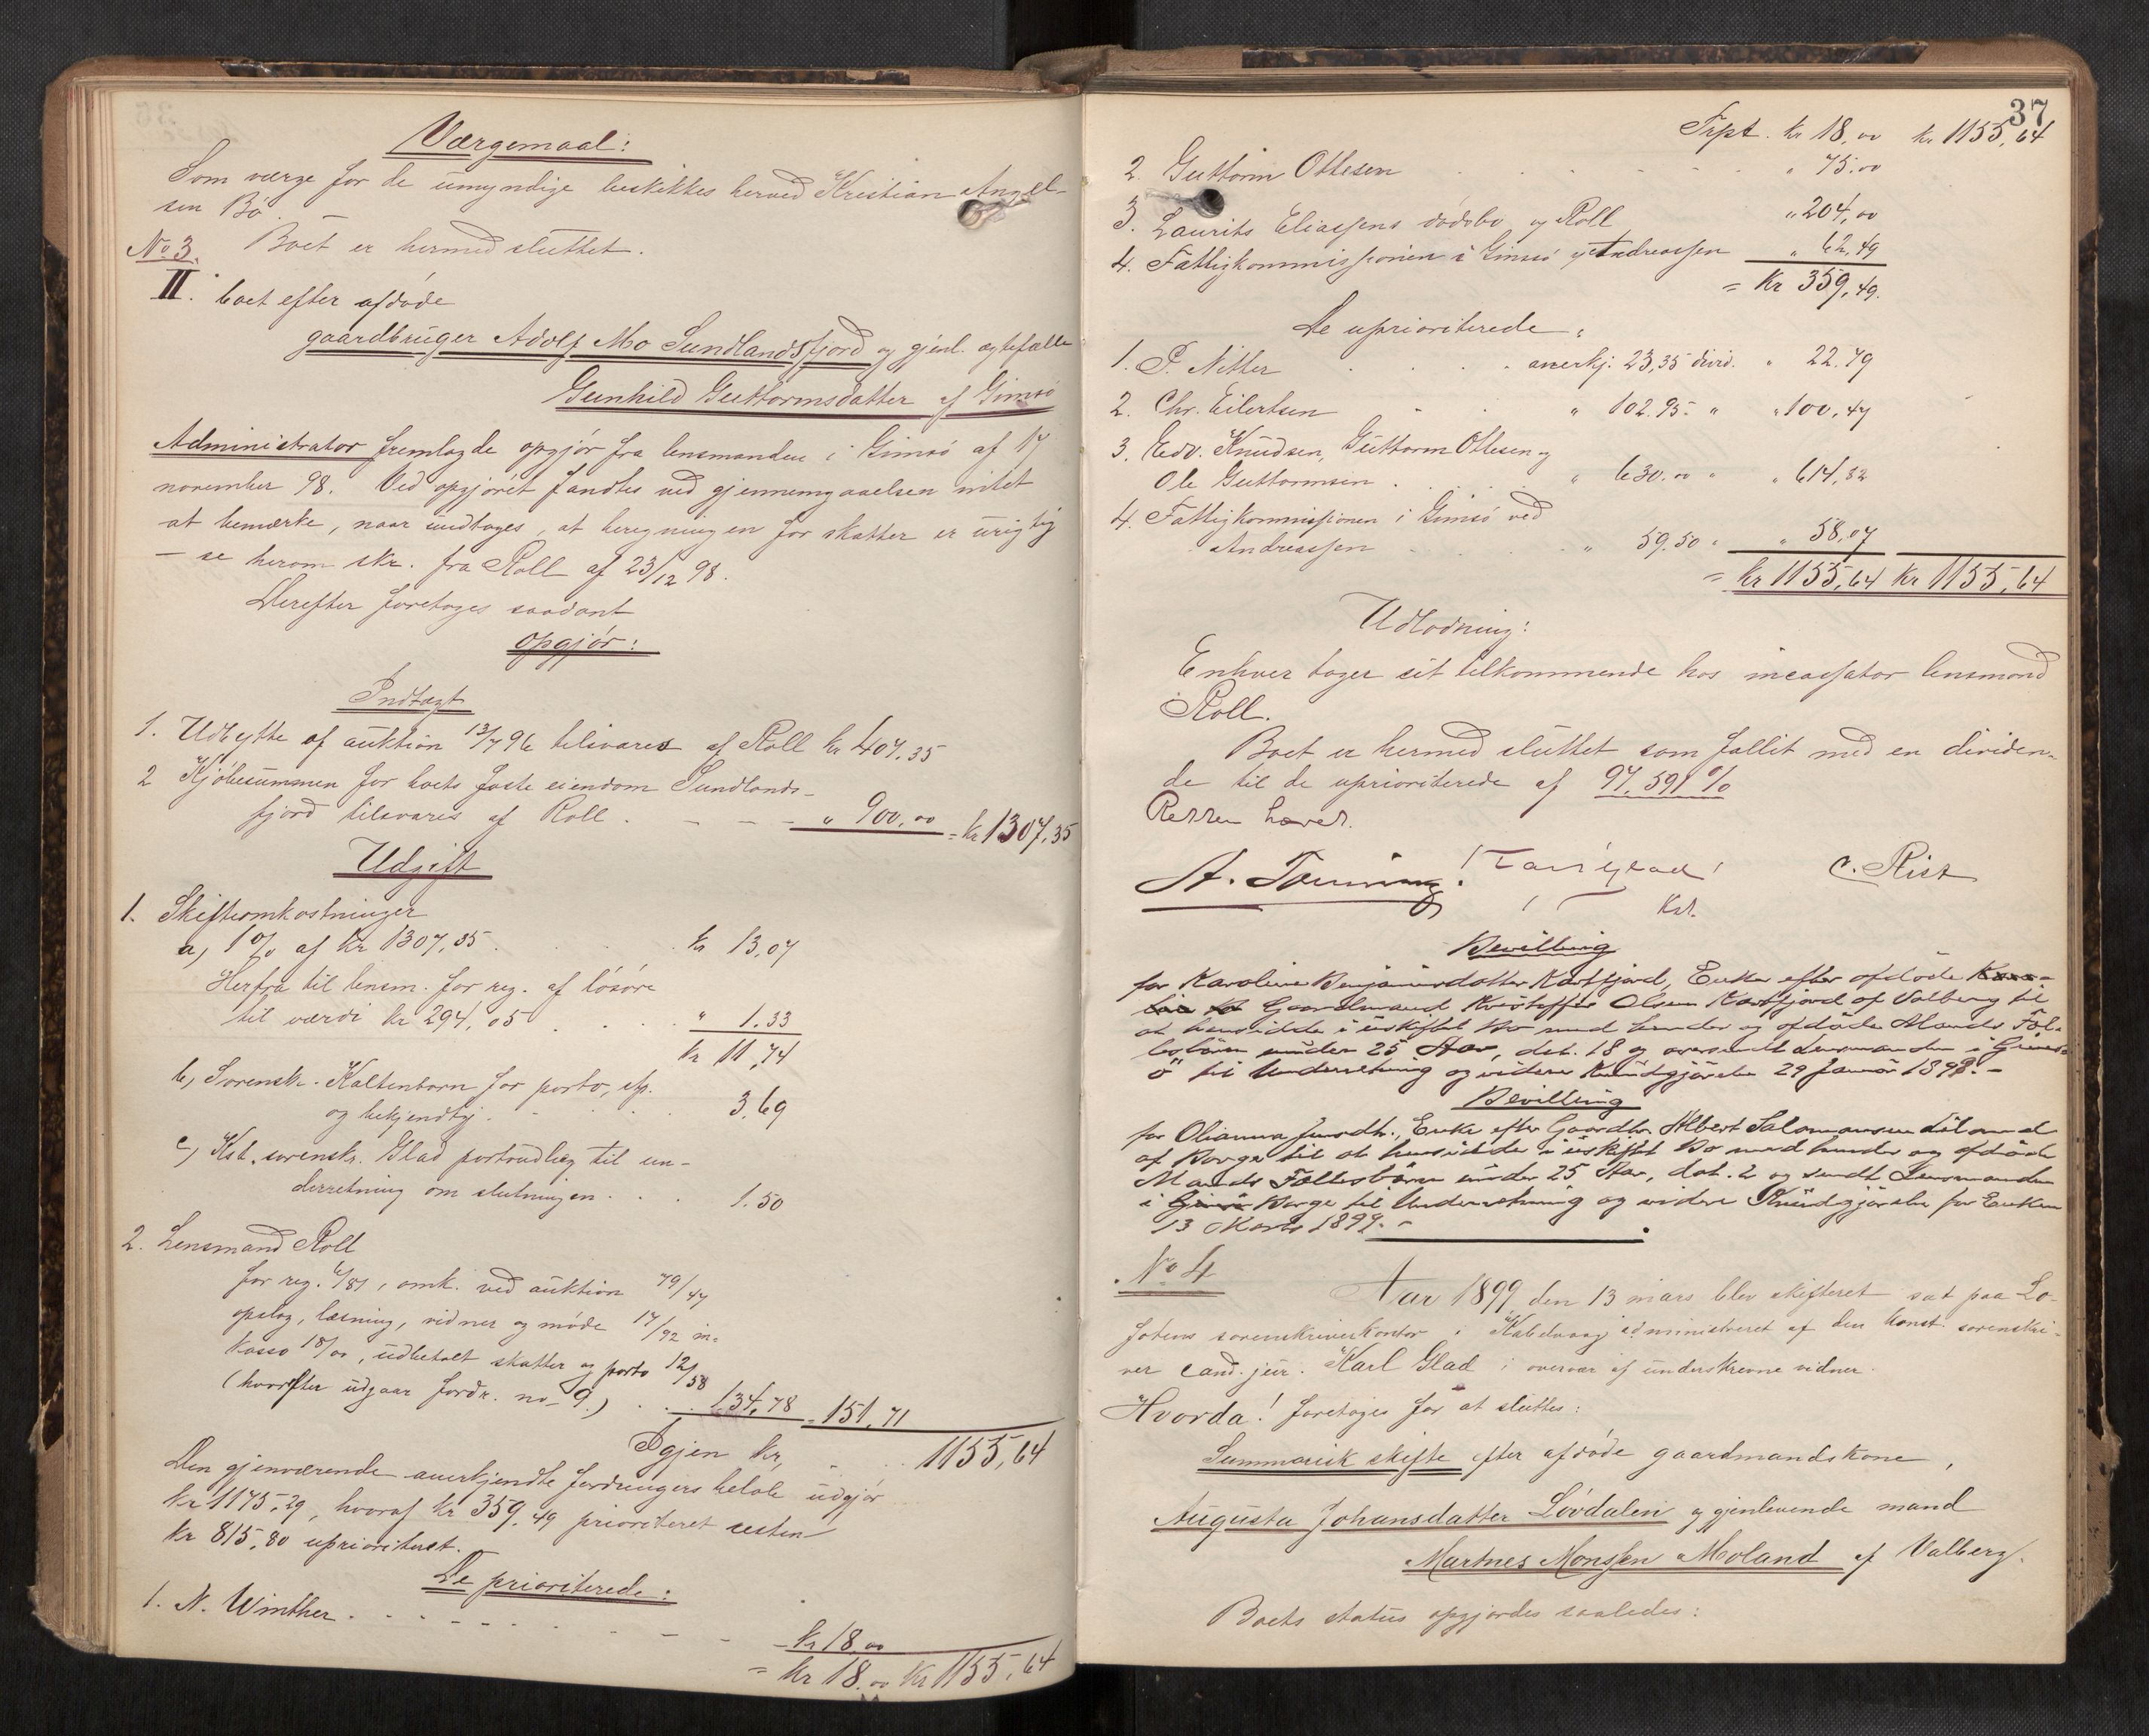 Værgemaal:
Som værge for de umyndige beskikkes herved Kristian Angel-
sen Bø.
Boet er hermed sluttet.
No 3.
II. boet efter afdøde
gaardbruger Adolf Mo Sundlandsfjord og gjenl. ægtefælle
Gunhild Guttormsdatter af Gimsø
Administrator fremlagde opgjør fra lensmanden i Gimsø af 17
november 98. Ved opgjøret fandtes ved gjennemgaaelsen intet
at bemærke, naar undtages, at beregningen for skatter er urigtig
– se herom skr. fra Roll af 23/12 98.
Derefter foretoges saadant
opgjør:
Indtægt
1. Udbytte af auktion 13/7 96 tilsvares af Roll kr 407.35
2 Kjøbesummen for boets faste eiendom Sundlands-
fjord tilsvares af Roll . – – – " 900,00 = kr 1307,35
Udgift
1. Skifteomkostninger
a, 1 % af kr 1307,35 . . . . kr 13,07
Herfra til lensm. for reg. af løsøre
til værdi kr 294,05 . . . . " 1.33
kr 11,74
b, Sorenskr. Kaltenborn for porto, 
og bekjendtg. . . . . 3,69
c, Kst. sorenskr. Glad portoudlæg til un-
derretning om slutningen . . . 1.50
2. Lensmand Roll
for reg. 6/81, omk. ved auktion 79/47
opslag, læsning, vidner og møde 17/92 in-
kasso 18/00, udbetalt skatter og porto 12/58
(hvorefter udgaar fordr. no 9.) . . 134,78 = 151,71
Igjen kr, . . . 1155,64
Den gjenværende anerkjendte fordringers beløb udgjør
kr 1175,29, hvoraf kr 359.49 prioriteret resten
kr 815,80 uprioriteret.
De prioriterede:
1. N. Winther . . . – – – – kr 18,00
= kr 18.00 kr 1155,64
37
Trpt. kr 18,00 kr 1155,64
2. Guttorm Ottesen . . . . . " 75.00
3. Laurits Eliassens dødsbo og Roll " 204,00
4. Fattigkommissionen i Gimsø v/ Andreassen " 62,49
= kr 359,49.
De uprioriterede:
1. P. Nitter . . . . anerkj. 23,35 divid. " 22.79
2. Chr. Eilertsen . . " 102.95 " " 100,47
3. Edv. Knudsen, Guttorm Ottesen og
Ole Guttormsen . . . . " 630.00 " " 614,32
4. Fattigkommissionen i Gimsø ved
Andreassen . . . . " 59.50 " " 58,07
= kr 1155,64 kr 1155,64
Udlodning:
Enhver tager sit tilkommende hos incassator lensmand
Roll.
Boet er hermed sluttet som fallit med en dividen-
de til de uprioriterede af 97,591 %
Retten hævet.
Karl Glad
A. Tønning. C. Rist
Kst.
Bevilling
for Karoline Benjaminsdatter Kartfjord, Enke efter afdøde
Gaardmand Kristoffer Olsen Kartfjord af Valberg til
at hensidde i uskiftet Bo med hendes og afdøde Mands Fæl-
lesbørn under 25 Aar, dat. 18 og oversendt Lensmanden i Gims-
ø til Underretning og videre Kundgjørelse 29 Januar 1898. –
Bevilling
for Olianna Jensdtr., Enke efter Gaardbr. Albert Salomonsen
af Borge til at hensidde i uskiftet Bo med hendes og afdøde
Mands Fællesbørn under 25 Aar, dat. 2 og sendt Lensmanden
i Gimsø Borge til Underretning og videre Kundgjørelse for Enken
13 Marts 1899. –
No 4
Aar 1899 den 13 mars blev skifteret sat paa Lo-
fotens sorenskriverkontor i Kabelvaag administreret af den konst. sorenskri-
ver cand. jur. Karl Glad i overvær af underskrevne vidner.
Hvorda! foretoges for at sluttes:
Summarisk skifte efter afdøde gaardmandskone,
Augusta Johansdatter Løvdalen og gjenlevende mand
Martnes Monssen Moland af Valberg.
Boets status opgjordes saaledes: